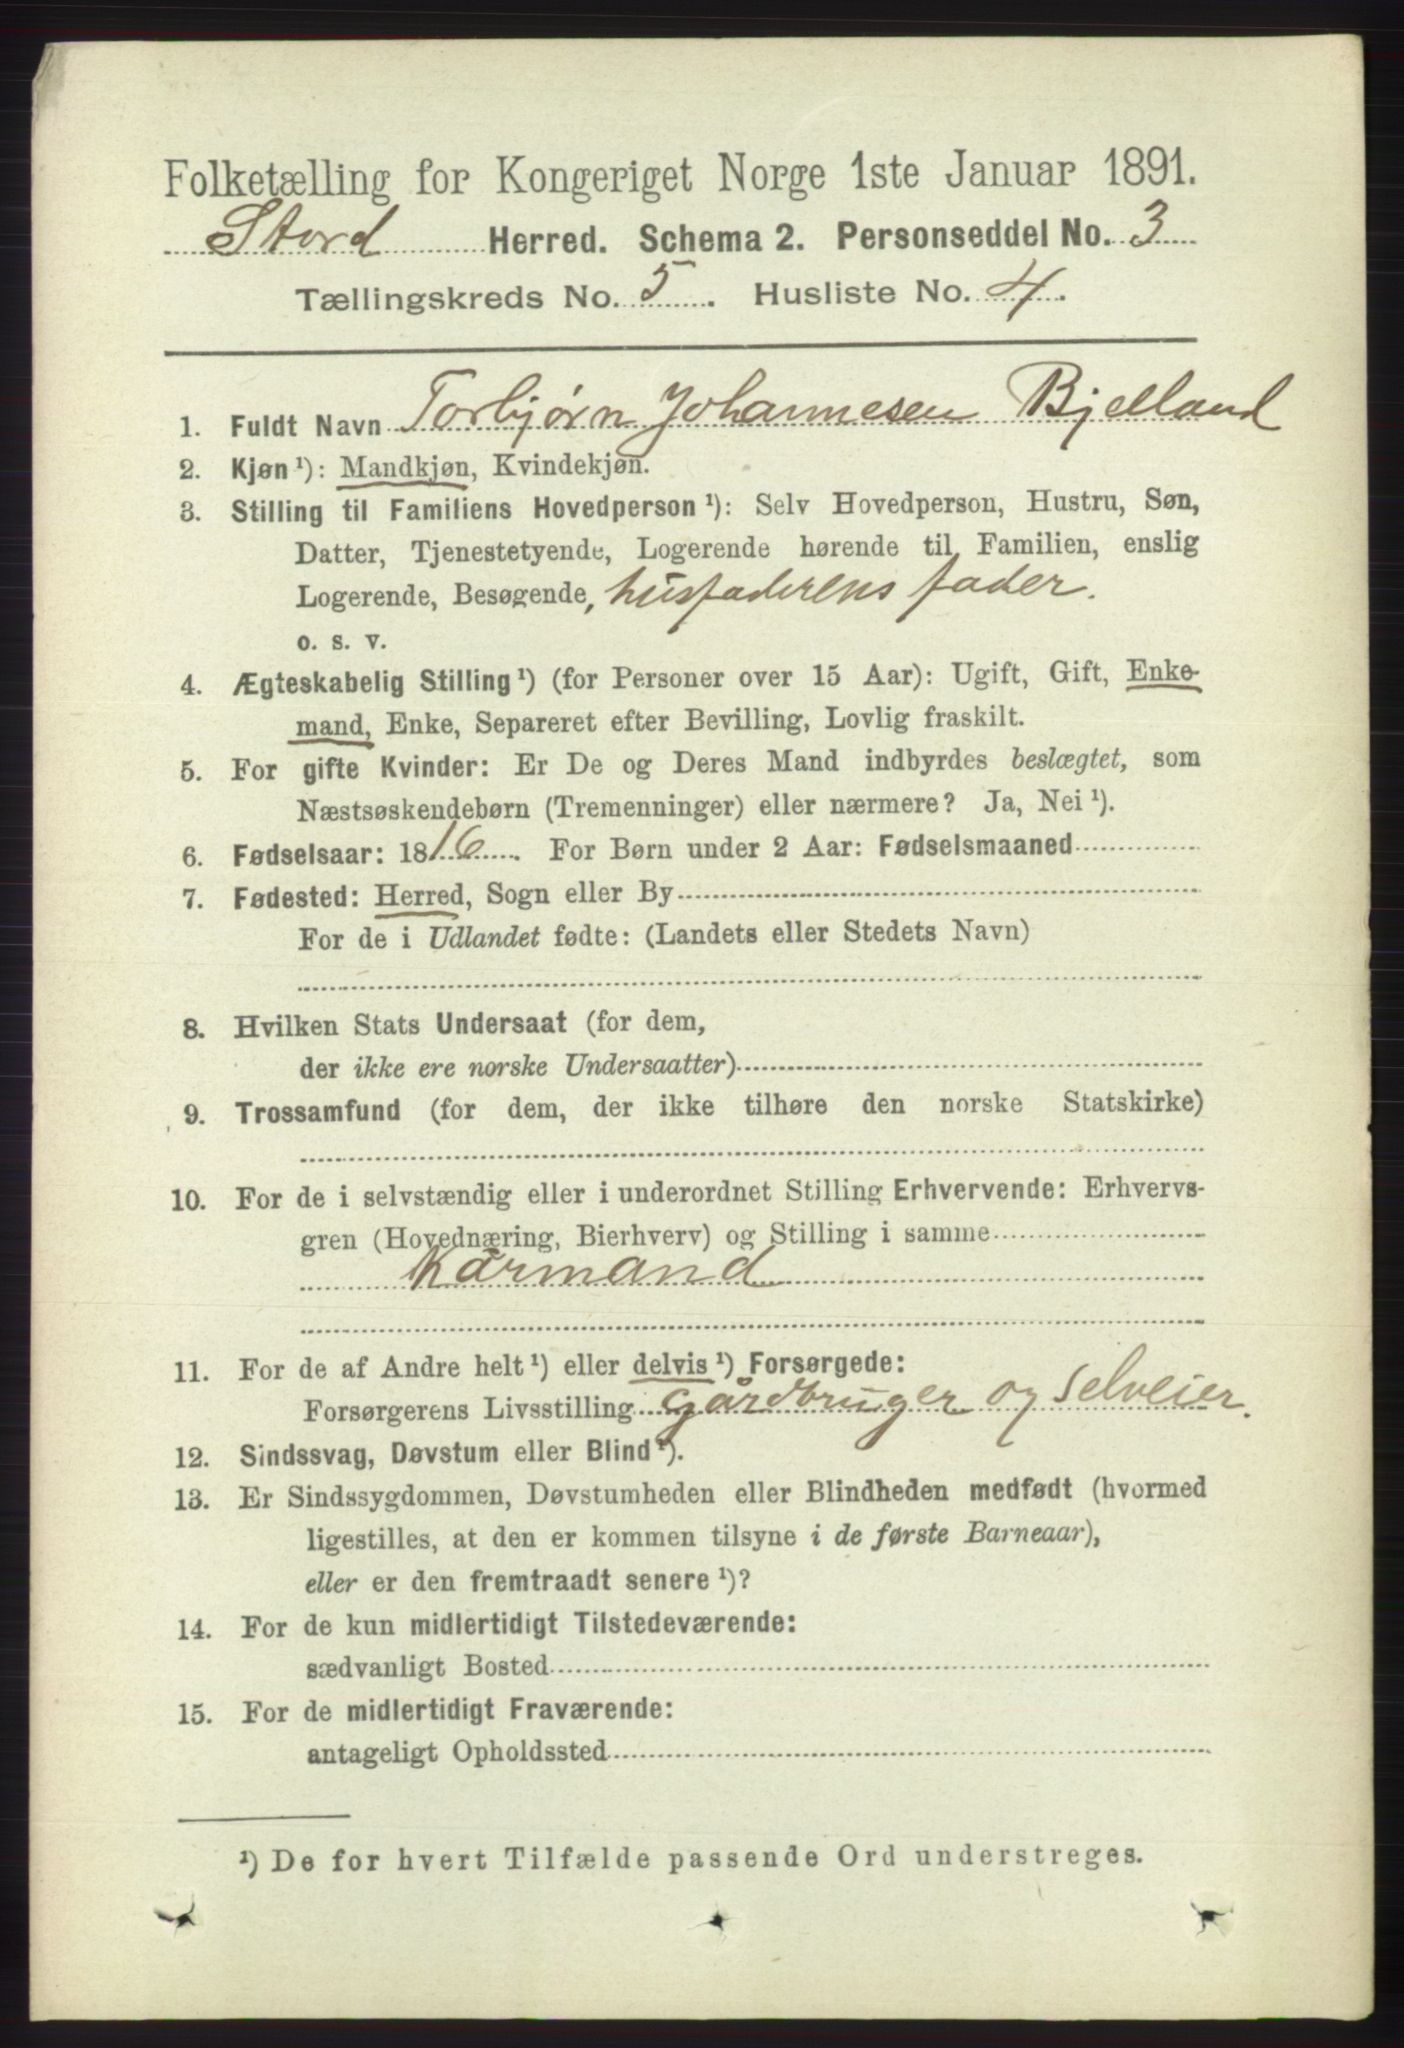 Folketælling for Kongeriget Norge 1ste Januar 1891.
Stord Herred. Schema 2. Personseddel No. 3
Tællingskreds No. 5. Husliste No. 4.
1. Fuldt Navn Torbjørn Johannesen Bjelland
2. Kjøn ¹): Mandkjøn, Kvindekjøn.
3. Stilling til Familiens Hovedperson ¹): Selv Hovedperson, Hustru, Søn,
Datter, Tjenestetyende, Logerende hørende til Familien, enslig
Logerende, Besøgende, husfaderens fader.
o. s. v.
4. Ægteskabelig Stilling ¹) (for Personer over 15 Aar): Ugift, Gift, Enke-
mand, Enke, Separeret efter Bevilling, Lovlig fraskilt.
5. For gifte Kvinder: Er De og Deres Mand indbyrdes beslægtet, som
Næstsøskendebørn (Tremenninger) eller nærmere? Ja, Nei ¹).
6. Fødselsaar: 1816. For Børn under 2 Aar: Fødselsmaaned
7. Fødested: Herred, Sogn eller By
For de i Udlandet fødte: (Landets eller Stedets Navn)
8. Hvilken Stats Undersaat (for dem,
der ikke ere norske Undersaatter)
9. Trossamfund (for dem, der ikke tilhøre den norske Statskirke)
10. For de i selvstændig eller i underordnet Stilling Erhvervende: Erhvervs-
gren (Hovednæring, Bierhverv) og Stilling i samme
Kårmand
11. For de af Andre helt ¹) eller delvis ¹) Forsørgede:
Forsørgerens Livsstilling Gårdbruger og selveier.
12. Sindssvag, Døvstum eller Blind ¹).
13. Er Sindssygdommen, Døvstumheden eller Blindheden medfødt (hvormed
ligestilles, at den er kommen tilsyne i de første Barneaar),
eller er den fremtraadt senere ¹)?
14. For de kun midlertidigt Tilstedeværende:
sædvanligt Bosted
15. For de midlertidigt Fraværende:
antageligt Opholdssted
¹) De for hvert Tilfælde passende Ord understreges.